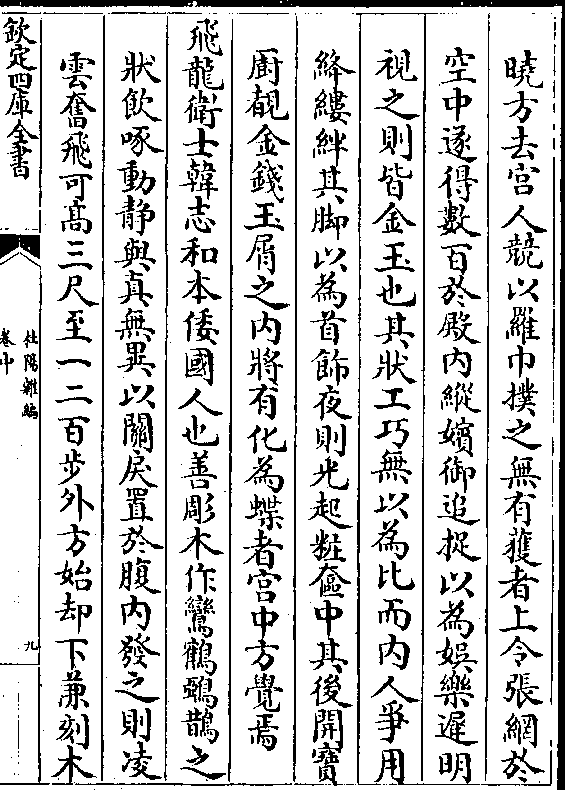 曉方去宫人競以羅巾撲之無有獲者上令張網於
空中遂得數百於殿内縱嬪御追捉以為娯樂遲明
視之則皆金玉也其狀工巧無以為比而内人爭用
絳縷絆其脚以為首飾夜則光起粧奩中其後開寶
厨覩金錢玉屑之内將有化為蝶者宫中方覺焉
飛龍衛士韓志和本倭國人也善彫木作鸞鶴鵶鵲之
狀飲啄動静與真無異以關戾置於腹内發之則凌
雲奮飛可髙三尺至一二百步外方始却下兼刻木
欽定四庫全書
杜陽雜編
卷中
九